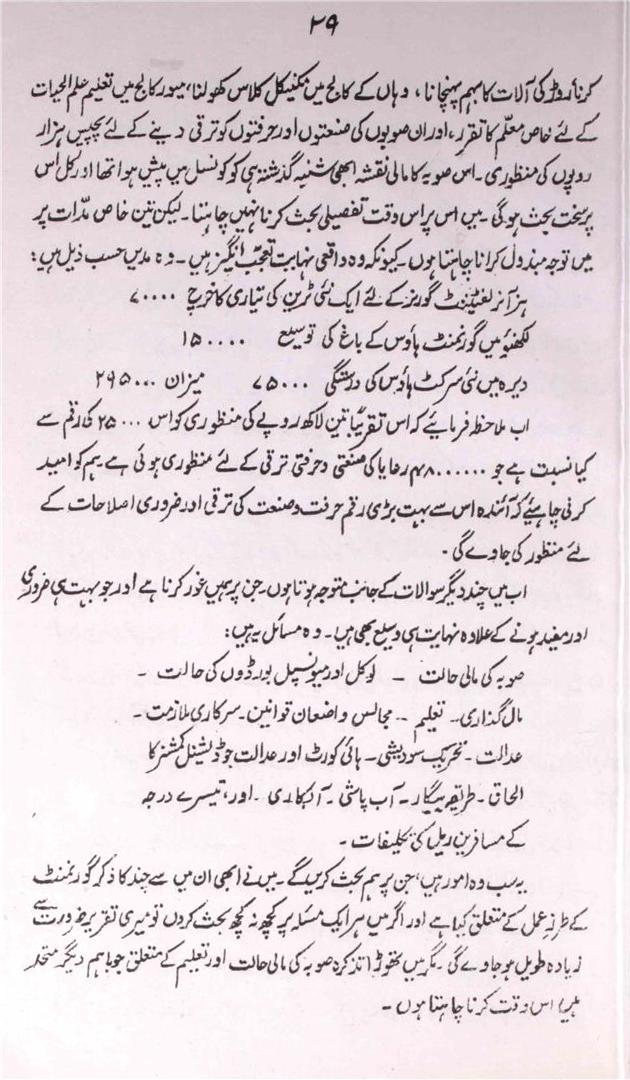 ۲۹
کرنا روڑ کی آلات کا بہم پہنچانا، وہاں کے کالج میں ٹکنیکل کلاس کھولنا، میور کالج میں تعلیم علم الحیات
کے لئے خاص معلّم کا تقرر، اور ان صوبوں کی صنعتوں اور حرفتوں کو ترقی دینے کے لئے پچیس ہزار
روپوں کی منظوری۔ اس صوبہ کا مالی نقشہ ابھی شنبہ گذشتہ ہی کو کونسل میں پیش ہوا تھا اور کل اس
پر سخت بحث ہوگی۔ میں اس پر اس وقت تفصیلی بحث کرنا نہیں چاہتا۔ لیکن تین خاص مدّات پر
میں توجہ مبذول کرانا چاہتا ہوں۔ کیونکہ وہ واقعی نہایت تعجّب انگیز ہیں۔ وہ مدیں حسب ذیل ہیں:
ہز آنر لفٹیننٹ گورنر کے لئے ایک نئی ٹرین کی تیاری کا خرچ ۷۰۰۰۰
لکھنؤ میں گورنمنٹ ہاؤس کے باغ کی توسیع ۱۵۰۰۰۰
ڈیرہ میں نئی سرکٹ ہاؤس کی درستگی ۷۵۰۰۰ میزان ۲۹۵۰۰۰
اب ملاحظہ فرمائیے کہ اس تقریباً تین لاکھ روپے کی منظوری کو اس ۲۵۰۰۰ کی رقم سے
کیا نسبت ہے جو ۴۸۰۰۰۰۰۰ رعایا کی صنعتی و حرفتی ترقی کے لئے منظوری ہوئی ہے ہم کو امید
کرنی چاہیئے کہ آئندہ اس سے بہت بڑی رقم حرفت و صنعت کی ترقی اور ضروری اصلاحات کے
لئے منظور کی جاوے گی۔
اب میں چند دیگر سوالات کے جانب متوجہ ہوتا ہوں۔ جن پر ہمیں غور کرنا ہے اور جو بہت ہی ضروری
اور مفید ہونے کے علاوہ نہایت ہی وسیع بھی ہیں۔ وہ مسائل یہ ہیں:
صوبہ کی مالی حالت – لوکل اور میونسپل بورڈوں کی حالت ۔
مال گذاری۔ تعلیم – مجالس واضعان قوانین۔ سرکاری ملازمت۔
عدالت ۔ تحریک سودیشی۔ ہائی کورٹ اور عدالت جوڈیشنل کمشنر کا
الحاق ۔ طریقہ بیگار ۔ آب پاشی ۔ آبکاری ۔ اور، تیسرے درجہ
کے مسافرین ریل کی تکلیفات ۔
یہ سب وہ امور ہیں، جن پر ہم بحث کریں گے۔ میں نے ابھی ان میں سے چند کا ذکر گورنمنٹ
کے طرز عمل کے متعلق کیا ہے اور اگر میں ہر ایک مسئلہ پر کچھ نہ کچھ بحث کردوں تو میری تقریر ضرورت سے
زیادہ طویل ہو جاوے گی۔ مگر میں تھوڑا تذکرہ صوبہ کی مالی حالت اور تعلیم کے متعلق جو باہم دیگر متحد
ہیں اس وقت کرنا چاہتا ہوں ۔